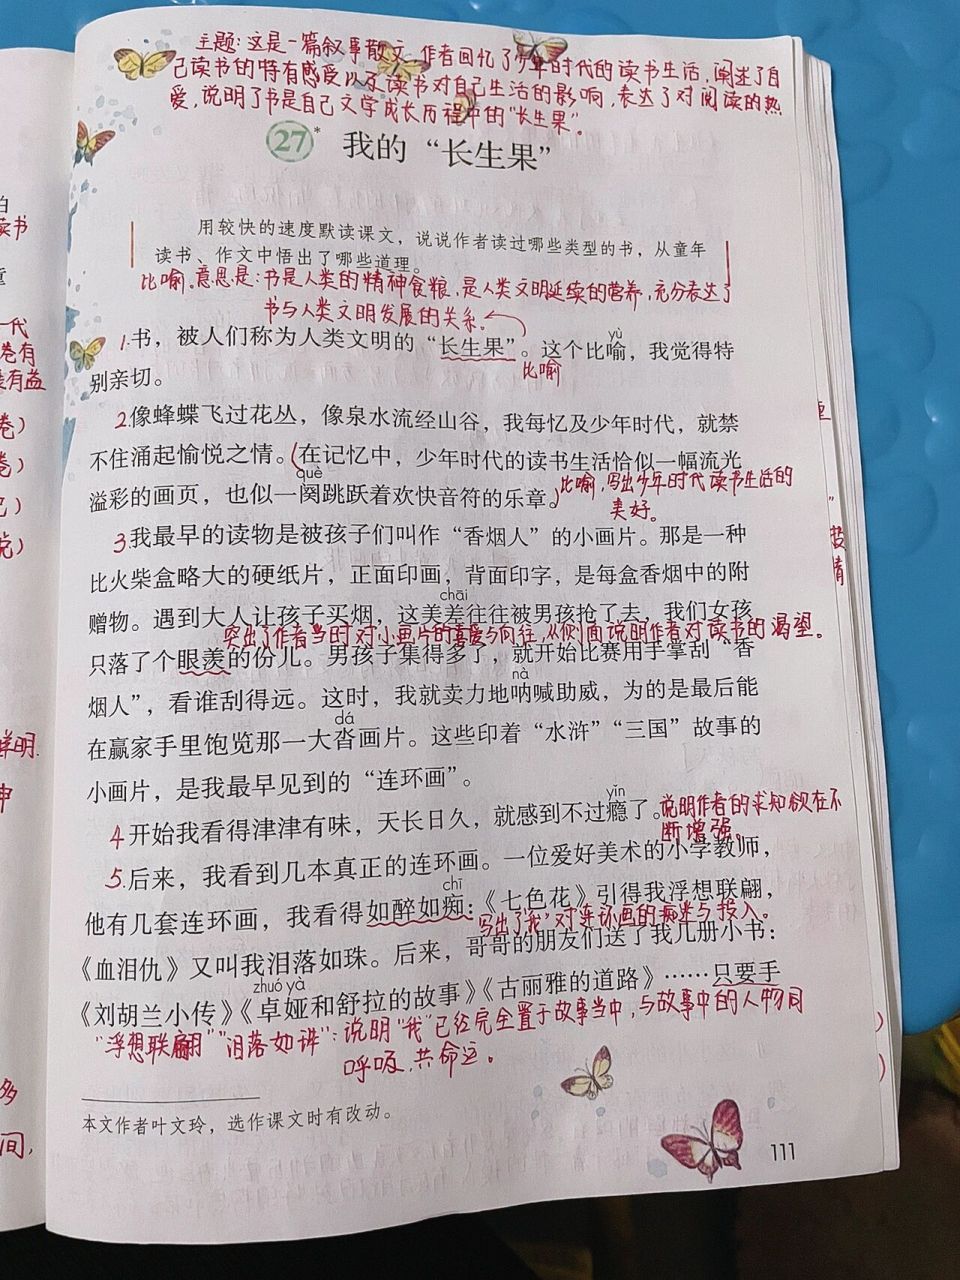 主题：这是一篇叙事散文，作者回忆了少年时代的读书生活，阐述了自
己读书的特有感受以及读书对自己生活的影响，表达了对阅读的热
爱，说明了书是自己文学成长历程中的“长生果”。
27* 我的“长生果”
用较快的速度默读课文，说说作者读过哪些类型的书，从童年
读书、作文中悟出了哪些道理。
比喻。意思是：书是人类的精神食粮，是人类文明延续的营养，充分表达了
书与人类文明发展的关系。
yù
1.书，被人们称为人类文明的“长生果”。这个比喻，我觉得特
比喻
别亲切。
2.像蜂蝶飞过花丛，像泉水流经山谷，我每忆及少年时代，就禁
不住涌起愉悦之情。（在记忆中，少年时代的读书生活恰似一幅流光
què
溢彩的画页，也似一阕跳跃着欢快音符的乐章。）比喻，写出少年时代读书生活的
美好。
3.我最早的读物是被孩子们叫作“香烟人”的小画片。那是一种
比火柴盒略大的硬纸片，正面印画，背面印字，是每盒香烟中的附
chāi
赠物。遇到大人让孩子买烟，这美差往往被男孩抢了去，我们女孩
突出了作者当时对小画片的喜爱与向往，从侧面说明作者对读书的渴望。
只落了个眼羡的份儿。男孩子集得多了，就开始比赛用手掌刮“香
nà
烟人”，看谁刮得远。这时，我就卖力地呐喊助威，为的是最后能
dá
在赢家手里饱览那一大沓画片。这些印着“水浒”“三国”故事的
小画片，是我最早见到的“连环画”。
yǐn
4.开始我看得津津有味，天长日久，就感到不过瘾了。说明作者的求知欲在不
断增强。
5.后来，我看到几本真正的连环画。一位爱好美术的小学教师，
chī
他有几套连环画，我看得如醉如痴：《七色花》引得我浮想联翩，
写出了“我”对连环画的痴迷与投入。
《血泪仇》又叫我泪落如珠。后来，哥哥的朋友们送了我几册小书：
zhuó yà
《刘胡兰小传》《卓娅和舒拉的故事》《古丽雅的道路》……只要手
“浮想联翩”“泪落如珠”：说明“我”已经完全置于故事当中，与故事中的人物同
呼吸，共命运。
本文作者叶文玲，选作课文时有改动。
111